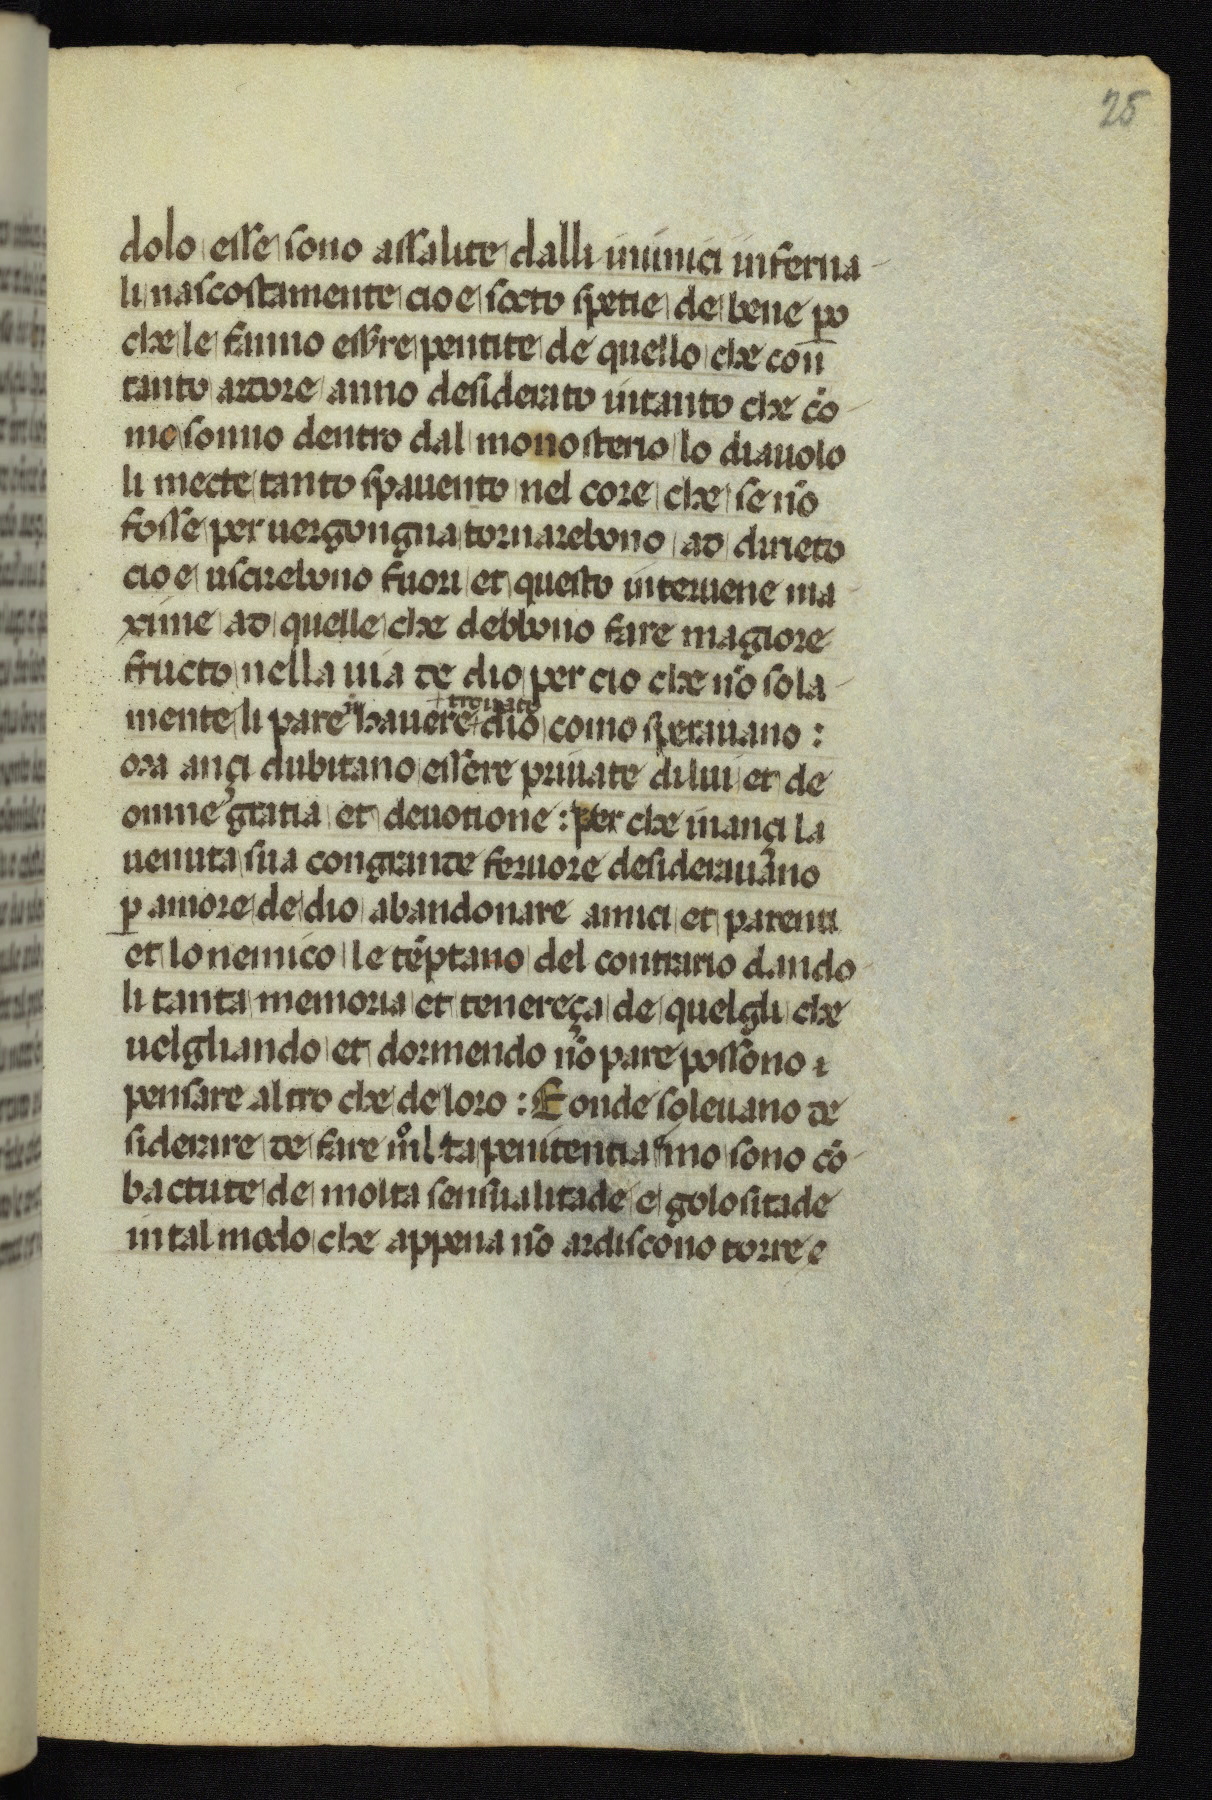 25
dolo esse sono assalite dalli inimici inferna
li nascostamente cioe socto spetie de bene ꝑo
che le fanno essere pentite de quello che con̄
tanto ardore anno desiderato intanto che cō
mo sonno dentro dal monosterio lo diauolo
li mecte tanto spauento nel core che se nō
fosse per uergongna tornarebono ad dirieto
cioe uscirebono fuori et questo interuene ma
xime ad quelle che debbono fare magiore
fructo nella uia de dio per cio che nō sola
mente li pare nō hauere trouato dio como sperauano :
ora ançi dubitano essere priuate dilui et de
omne gratia et deuotione : per che inançi la
uenuta sua congrande feruore desiderauāno
ꝑ amore de dio abandonare amici et parenti
et lo nemico le tēptano del contrario dando
li tanta memoria et tenereça de quelgli che
uelgliando et dormendo nō pare possono
pensare altro che de loro : E onde soleuano de
siderare de fare molta penitentia mo sono cō
bactute de molta sensualitade e golositade
in tal modo che appena nō ardiscono torre e